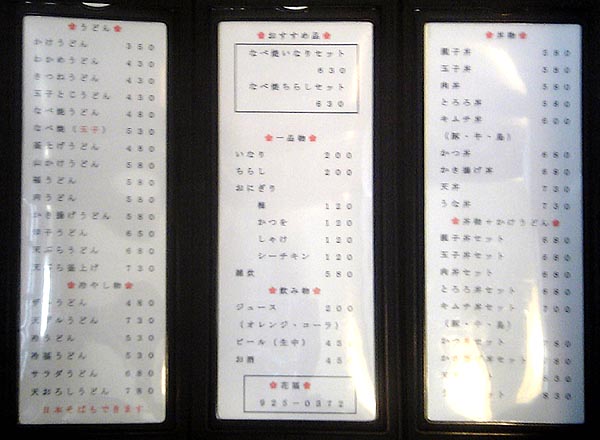 うどん
かけうどん 350
わかめうどん 430
きつねうどん 430
玉子とじうどん 430
なべ焼うどん 480
なべ焼(玉子) 530
釜上げうどん 480
山かけうどん 580
福うどん 580
肉うどん 580
かき揚げうどん 580
うどん 650
天ぷらうどん 680
天ぷら釜上げ 730
冷やし物
うどん 480
天ザルうどん 730
冷うどん 530
冷福うどん 530
サラダうどん 680
天おろしうどん 780
日本そばもできます
おすすめ品
なべ焼いなりセット
630
なべ焼ちらしセット
630
一品物
いなり 200
ちらし 200
おにぎり
梅 120
かつを 120
しゃけ 120
シーチキン 120
雑炊 580
飲み物
ジュース 200
(オレンジ・コーラ)
ビール(生中) 430
お酒 450
花福
925-0372
丼物
親子丼 580
玉子丼 580
肉丼 580
とろろ丼 580
キムチ丼 600
(豚・牛・鳥)
かつ丼 680
かき揚げ丼 680
天丼 730
うな丼 730
丼物+かけうどん
親子丼セット 680
玉子丼セット 680
肉丼セット 680
とろろ丼セット 680
キムチ丼セット 700
(豚・牛・鳥)
かつ丼セット 80
セット 80
830
830